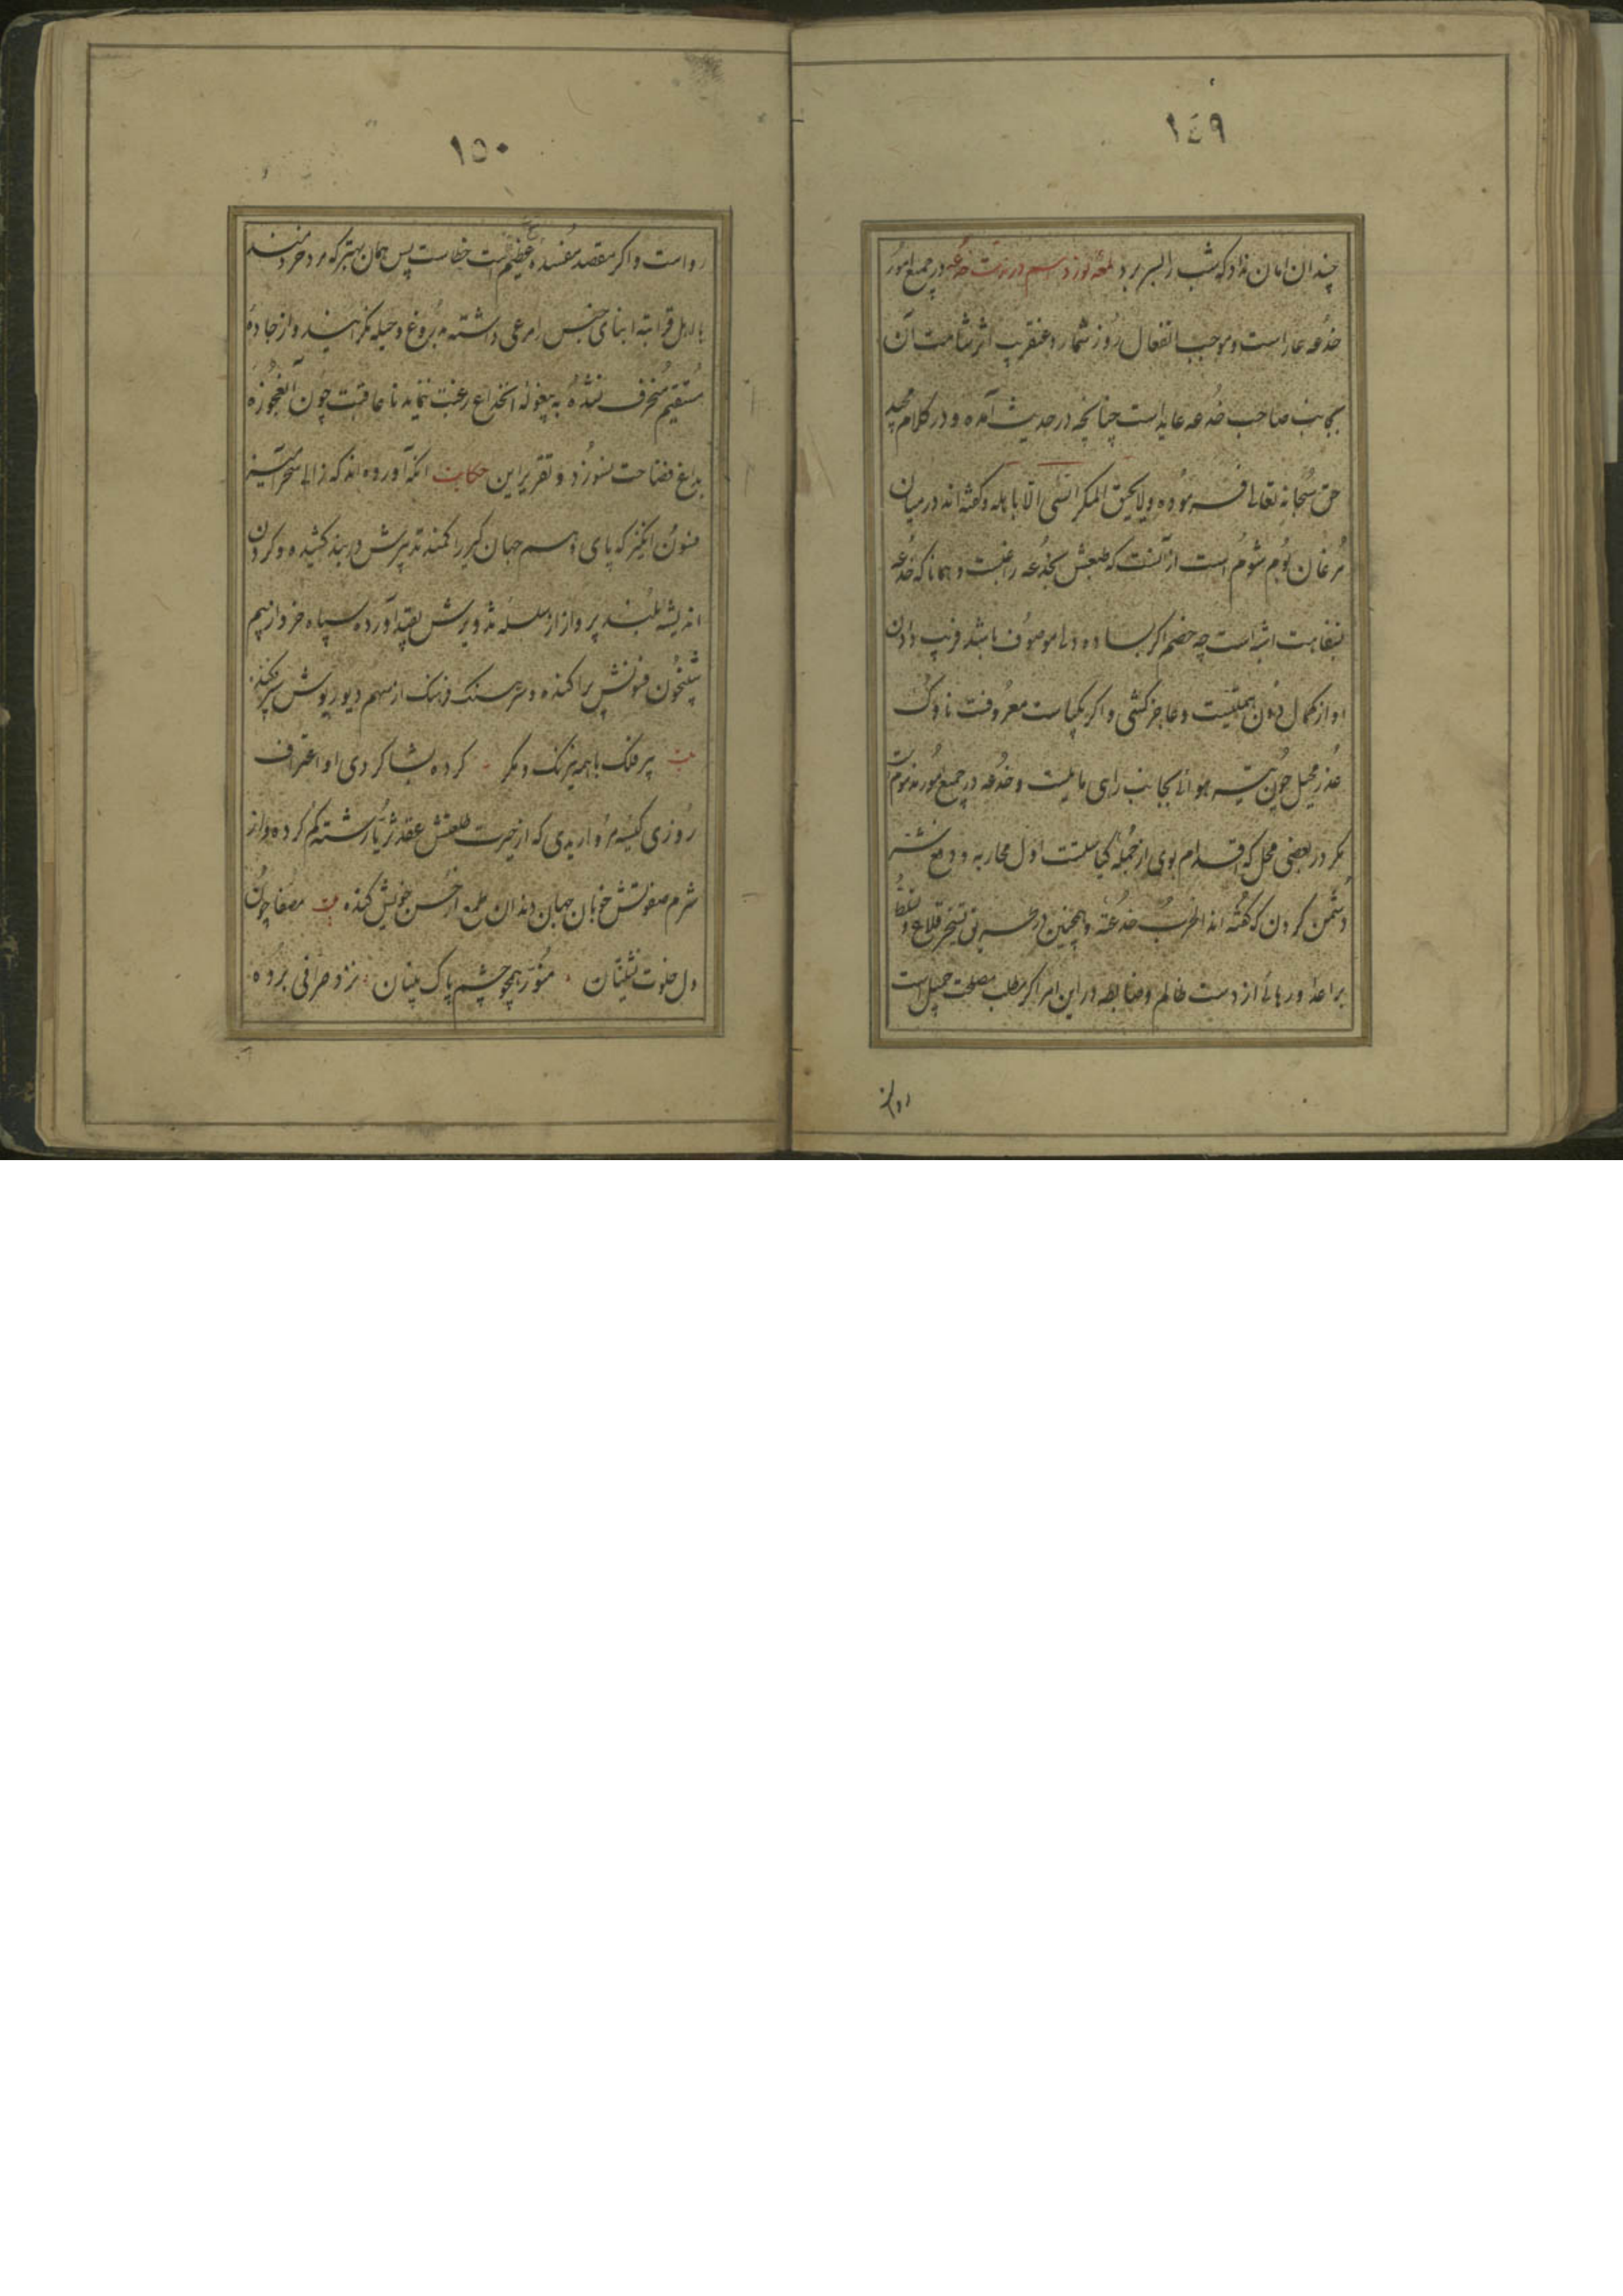 ١٤٩
چندان امان نداد که شب را بسر برد لمعه نوزدهم در مذمت خدعه در جمیع امور
خدعه عار است و موجب انفعال روز شمار و عنقریب اثر شامت آن
بجانب صاحب خدعه عاید است چنانچه در حدیث آمده و در کلام مجید
حق سبحانه تعالی فرموده ولا یحیق المکر السیّی الّا باهله و گفته اند در میان
مرغان بوم شوم است از آنست که طبعش بخدعه راغبست و همانا که خدعه
بسفاهت اشبه است چه خصم اگر بساده دلی موصوف باشد فریب دادن
او از کمال دون همتیست و عاجز کشی و اگر بکیاست معروفست ناوک
عذر محیل چون تیر هوائی بجانب رای مایلست و خدعه در جمیع امور مذموم است
مکر در بعضی محل که اقدام بوی از جمله کیاست اول محاربه و دفع شر
دشمن کردن که گفته اند الحرب خدعة و همچنین در تسخیر قلاع و
بر اعدا و رهائی از دست ظالم و ضابطه در این امر اگر مطلب مصلحت جمیل است
روا
١٥٠
رواست و اگر مقصد مفسده عظیم است خطاست پس همان بهتر که مرد خردمند
با اهل قرابه ابنای جنس امرعی داشته بدروغ و حیله نگراهیند و از جاده
مستقیم منحرف نشده به بیغوله انخداع رغبت ننماید تا عاقبت چون آنعجوزه
بداغ فضاحت نسوزد و تقریر این حکایت آنکه آورده اند که زالی سحر آمیز
فسون انگیز که پای وهم جهان گیر را کمند تدبیرش در بند کشیده و گردن
اندیشه بلند پرواز از سلسله تذویرش بقید آورده سپاه خرد از بیم
شبیخون فنونش پراکنده و سرهنگ فرهنگ از سهم دیو ریوش سپر فکنده
بیت پیر فلک با همه نیرنگ و مکر کرده بشاکردی او اعتراف
روزی کیسه مرواریدی که از حیرت طلعتش عقد ثریا رشته کم کرده و از
شرم صفوتش خوبان جهان دندان طمع از حسن خویش کنده بیت مصفا چون
دل خلوت نشینان منور همچو چشم پاک بینان نزد صرافی برده